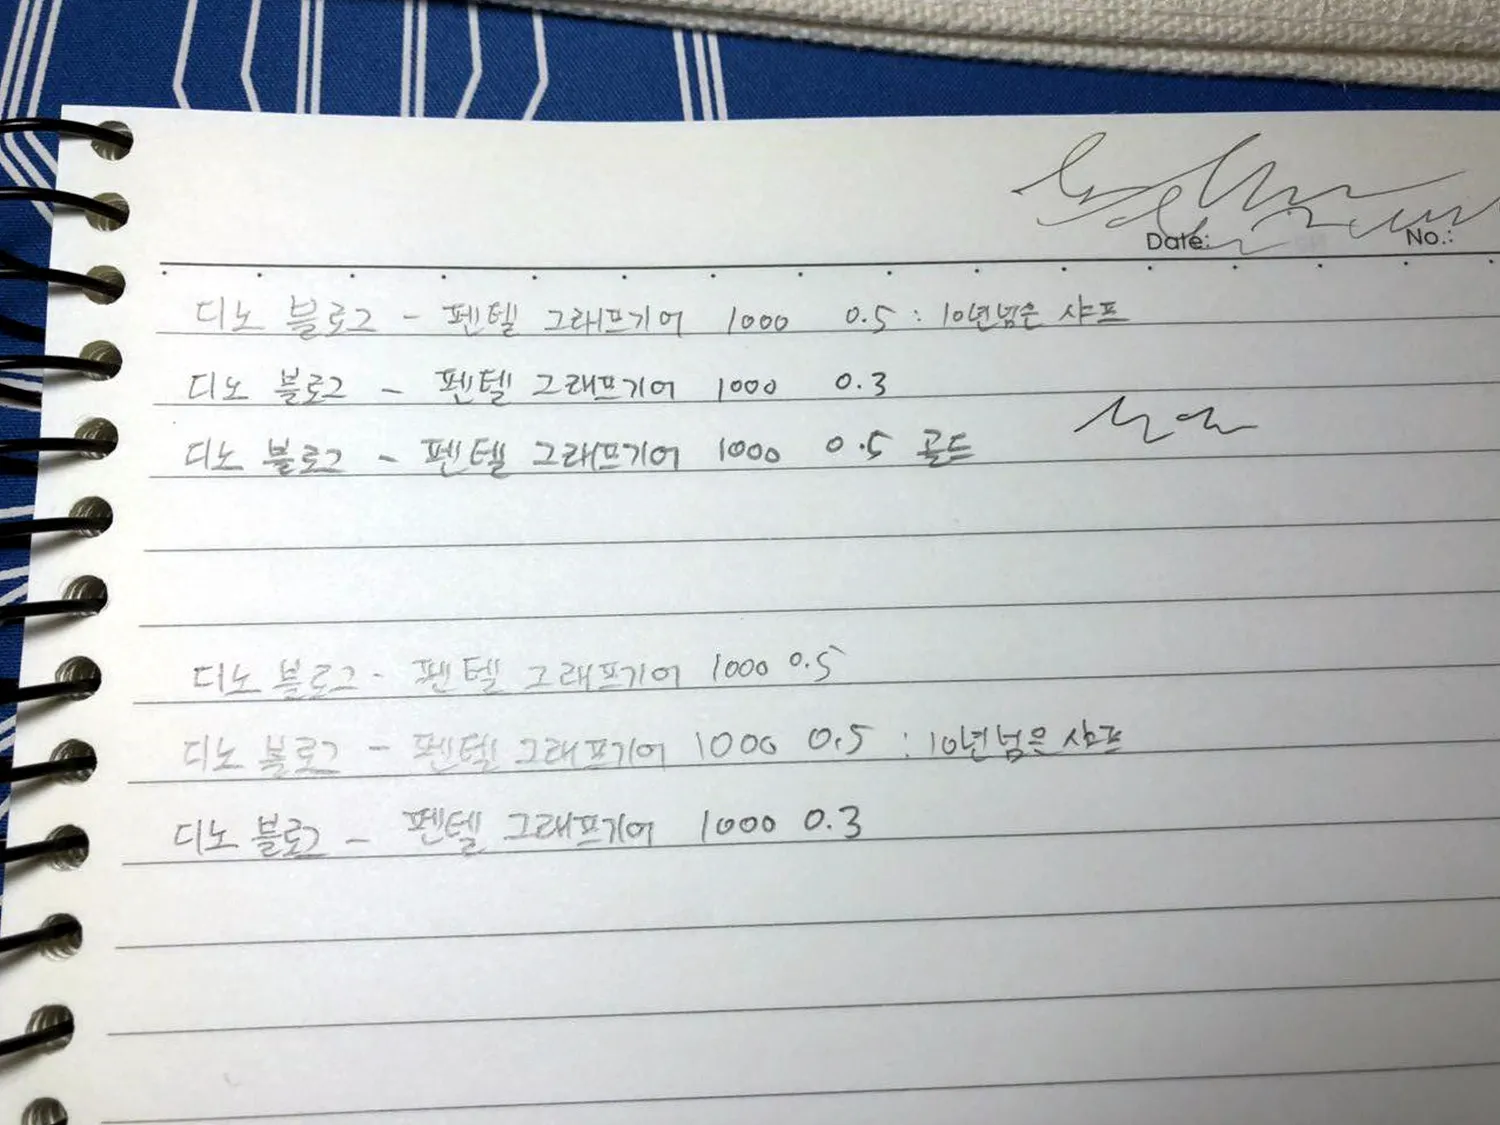 Date: No.:
디노 블로그 - 펜텔 그래프기어 1000 0.5 : 10년넘은 샤프
디노 블로그 - 펜텔 그래프기어 1000 0.3
디노 블로그 - 펜텔 그래프기어 1000 0.5 골드
디노 블로그 - 펜텔 그래프기어 1000 0.5
디노 블로그 - 펜텔 그래프기어 1000 0.5 : 10년넘은 샤프
디노 블로그 - 펜텔 그래프기어 1000 0.3